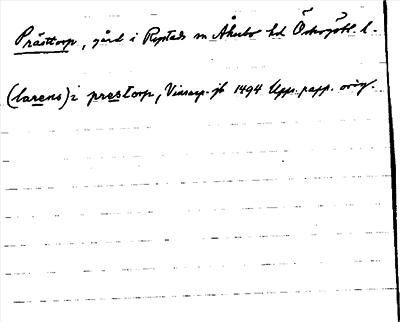 Prästtorp, gård i Rystads sn Åkerbo hd Östergötl. l.
(larens) i prestorp, Vinsarp. jb 1494 Upps. papp. orig.